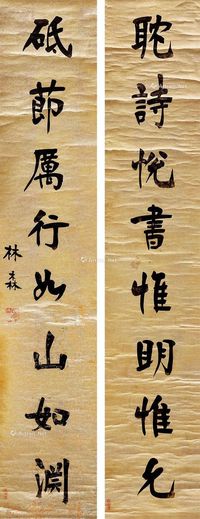 耽詩悅書惟明惟允
砥節厲行如山如淵
林森